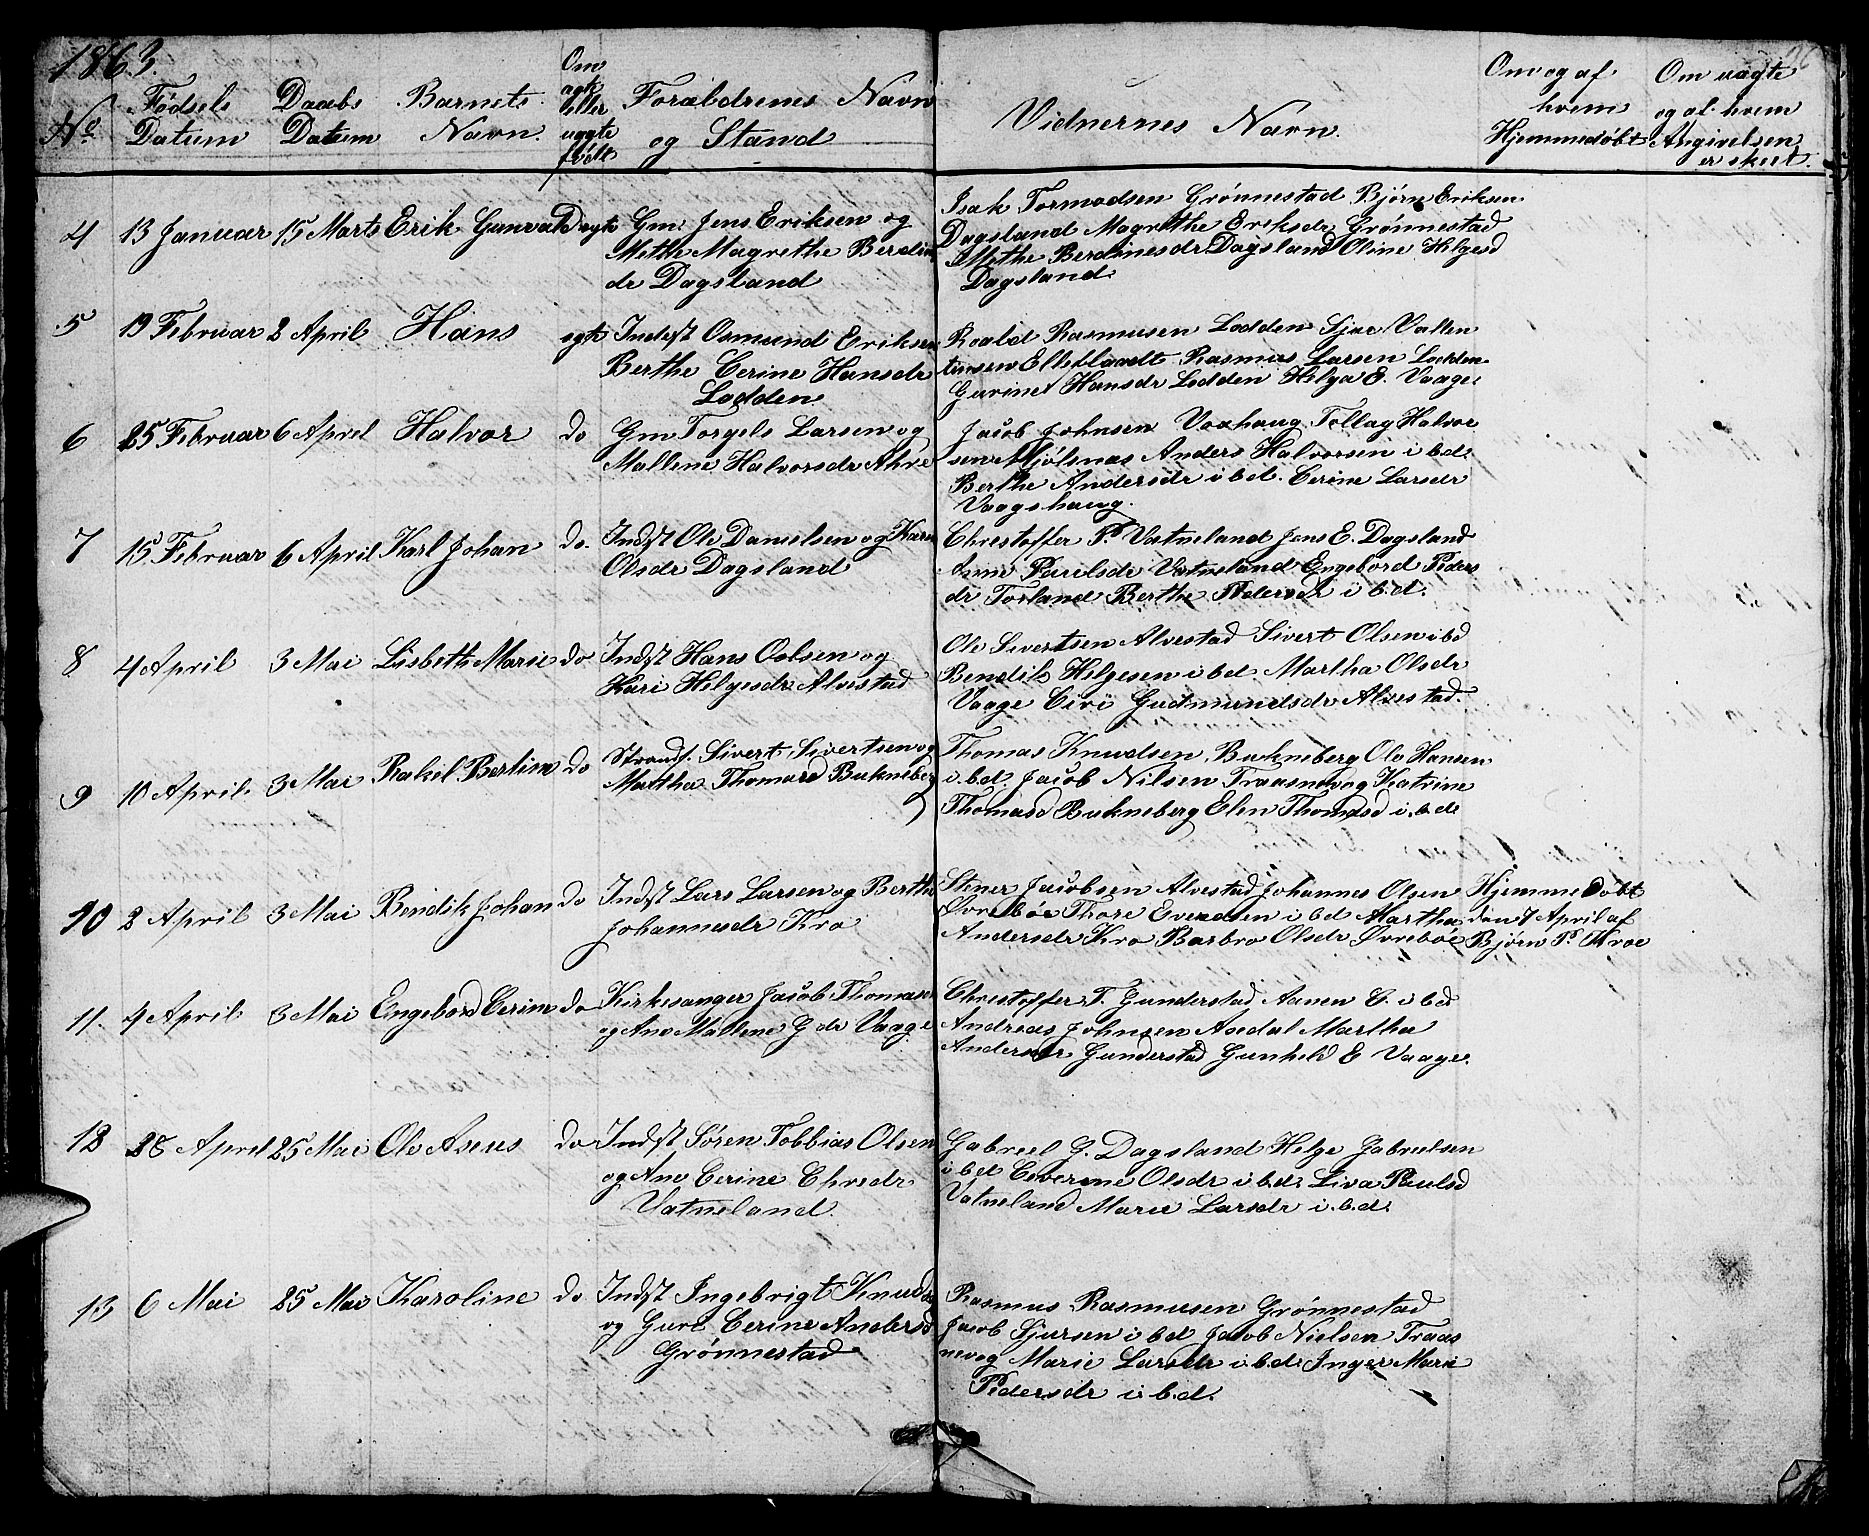 1863.
26
No
Fødsels Datum
Daabs Datum
Barnets Navn.
Om egte Eller uægte født
Forældrenes Navn og Stand
Vidnernes Navn.
Om og af hvem Hjemmedøbt
Om uægte og af hvem Angivelsen er skeet.
4 13 Januar 15 Marts Erik Gunvald egte Gm. Jens Eriksen og
Methe Magrethe Berdin
dr Dagsland
Isak Tormodsen Grønnestad Bjørn Eriksen
Dagsland Magrethe Eriksdr Grønnestad
Methe Berdinesdr Dagsland Oline Helgesd
Dagsland.
5 19 Februar 2 April Hans egte Indst Osmund Eriksen
Berthe Cerine Hansdr
Lodden
Roald Rasmusen Lodden Sjur Vallen
tinsen Rasmus Larsen Lodden
Gurine Hansdr Lodden Helga E. Vaage.
6 25 Februar 6 April Halvor do Gm Torgels Larsen og
Mallene Halvorsdr Ahre
Jacob Johnsen Voxhaug Tollag Halvor
sen Mjølsnas Anders Halvorsen i bd.
Berthe Andersdr i bd. Cerine Larsdr
Vaagshaug.
7 15 Februar 6 April Karl Johan do. Indst Ole Danielsen og Karen
Olsdr Dagsland
Chrestoffer P. Vatneland Jens E. Dagsland
Paulsdr Vatneland Engebord Peders
dr Torland Berthe Pedersdr i b.d.
8 4 April 3 Mai Lisbeth Marie do Indst Hans Oolsen og
Kari Helgesdr Alvestad
Ole Sivertsen Alvestad Sivert Olsen i bd
Bendik Helgesen i bd Martha Olsdr
Vaage Ciri Gudmundsdr Alvestad.
9 10 April. 3 Mai Rakel Bertine do Strands. Sivert Sivertsen og
Martha Thomasd Bukneberg
Thomas Knudsen Bukneberg Ole Hansen
i.bd. Jacob Nilsen Traasnevog Katrine
Thomasd Bukneberg Elen Thomasd i.bd.
10 2 April 3 Mai Bendik Johan do Indst Lars Larsen og Berthe
Johannesdr Kro
Stener Jacobsen Alvestad Johannes Olsen
Øvrebøe Thore Evendsen i bd Martha
Andersdr Kro Barbro Olsdr Øvrebøe
Hjemme Døbt
den 7 April af
Bjørn P. Kroe
11. 4 April 3 Mai Engebord Cerine do Kirkesanger Jacob Thomasen
og Ane Mallene G dr Vaage
Chrestoffer T. Gunderstad Aanen G. i bd
Andreas Johnsen Axdal Martha
Andersdr Gunderstad Gunheld E Vaage.
12 28 April 25 Mai Ole Aseus do Indst Søren Tobbias Olsen
og Ane Cerine Chrsdr
Vatneland.
Gabreel G. Dagsland Helge Gabreelsen
i bd Ceverine Olsdr i bd. Liva Paulsd
Vatneland Marie Larsdr i.b.d.
13 6 Mai 25 Mai Karoline do Indst Ingebrigt Knuds
og Guro Cerine Andersd
Grønnestad
Rasmus Rasmusen Grønnestad
Jacob Sjursen i bd Jacob Nielsen Traas
nevog Marie Larsdr i.bd. Inger Marie
Pedersdr i.b.d.